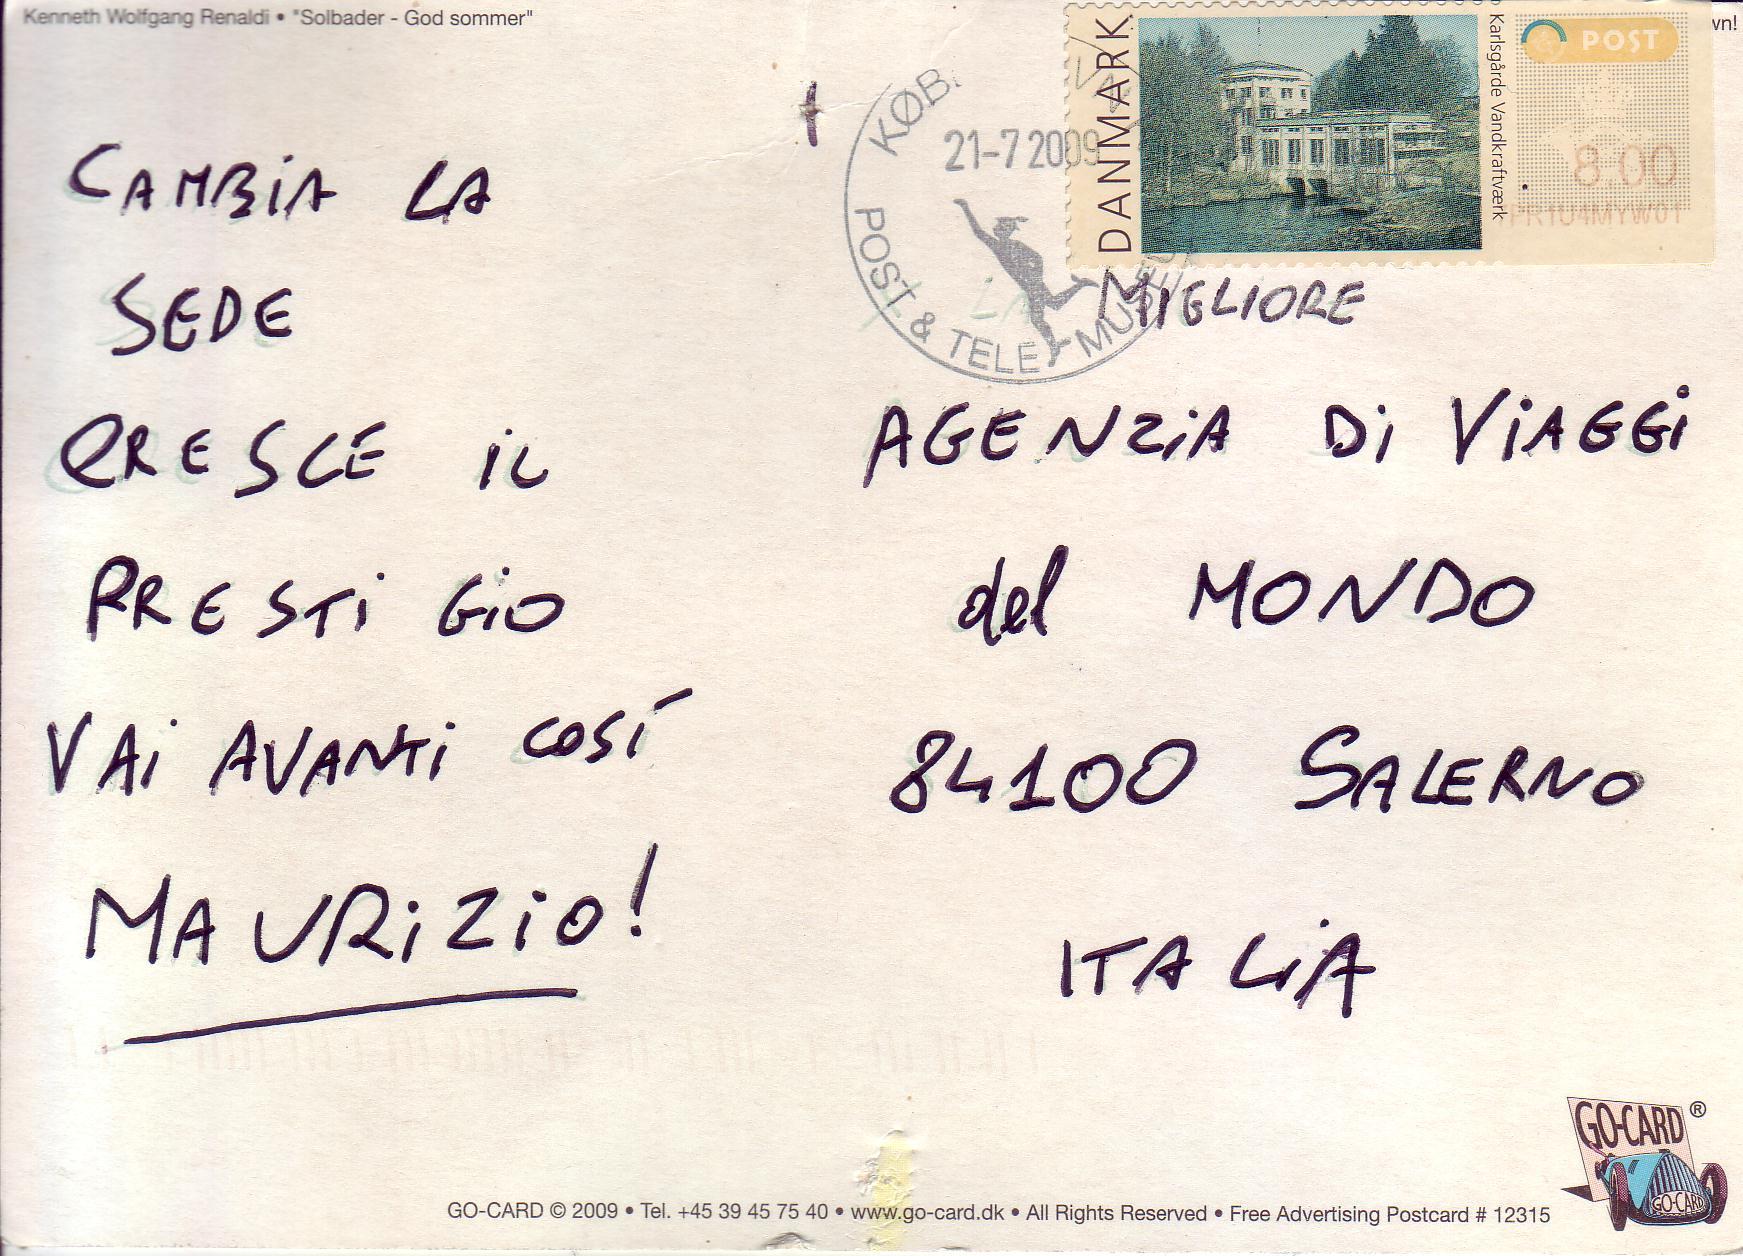 Kenneth Wolfgang Renaldi • "Solbader - God sommer"
wn!
CAMBIA LA
SEDE
CRESCE IL
PRESTIGIO
VAI AVANTI COSÍ
MAURIZIO!
KØB.
21-7 2009
POST & TELE MUSEU
DANMARK
Karlsgårde Vandkraftværk
POST
8.00
LA
MIGLIORE
AGENZIA DI VIAGGI
del MONDO
84100 SALERNO
ITALIA
GO-CARD®
GO-CARD
GO-CARD © 2009 • Tel. +45 39 45 75 40 • www.go-card.dk • All Rights Reserved • Free Advertising Postcard # 12315